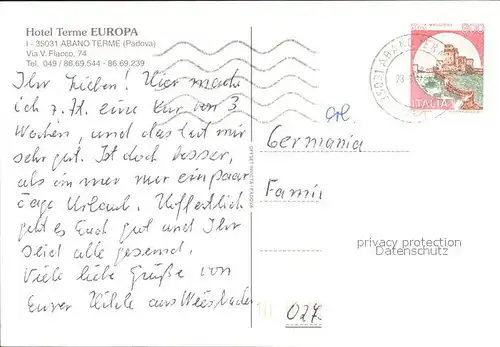 Hotel Terme EUROPA
I - 35031 ABANO TERME (Padova)
Via V. Flacco, 74
Tel. 049 / 86.69.544 - 86.69.239
Ihr Lieben! Hier mache
ich z. Zt. eine Kur von 3
Wochen, und das tut mir
sehr gut. Ist doch besser,
als immer nur ein paar
Tage Urlaub. Hoffentlich
geht es Euch gut und Ihr
seid alle gesund.
Viele liebe Grüße von
Eurer Hilde aus Wiesbaden
ITALIA
35031 ABANO
Germania
Famil
privacy protection
027